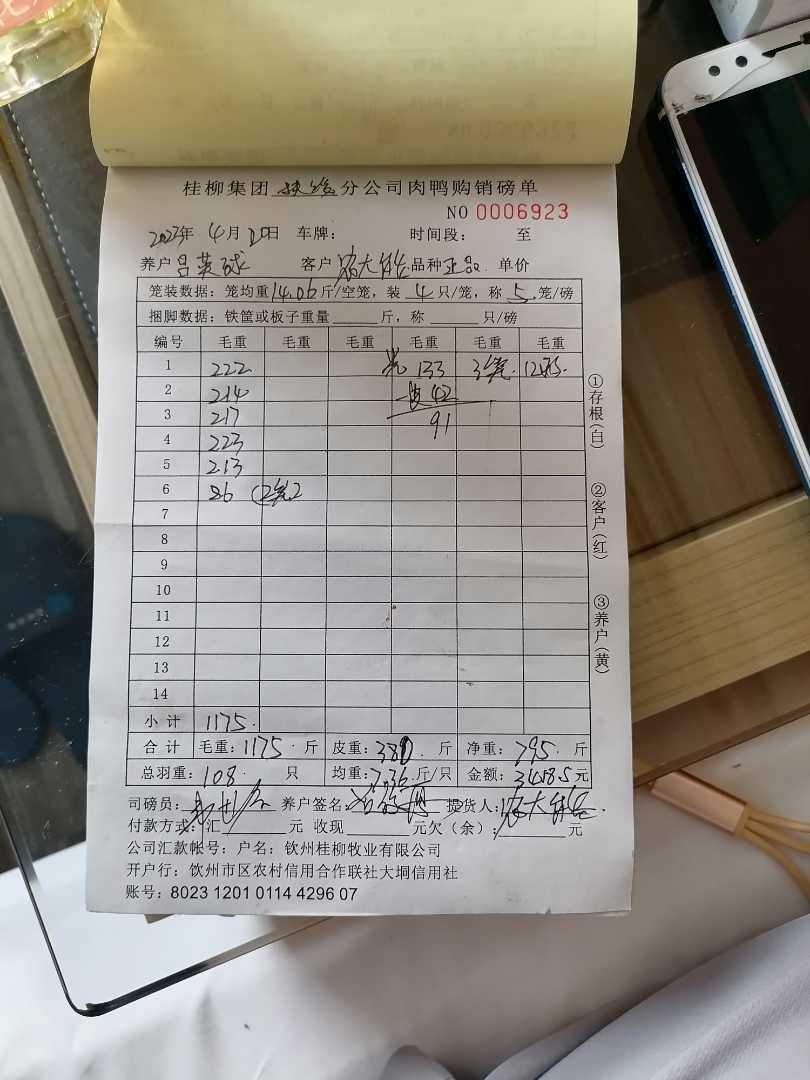 桂柳集团 分公司肉鸭购销磅单
NO 0006923
2023年 4月20日 车牌： 时间段： 至
养户 吕英球 客户 农大 品种 正品. 单价
笼装数据：笼均重14.06斤/空笼，装 4 只/笼，称 5 笼/磅
捆脚数据：铁筐或板子重量 斤，称 只/磅
编号 毛重 毛重 毛重 毛重 毛重 毛重
1 222 毛 133 3笼. 12只.
2 214 皮 42
3 217 91
4 223
5 213
6 86 (2笼)
7
8
9
10
11
12
13
14
小计 1175.
合计 毛重：1175 . 斤 皮重：380 . 斤 净重：795 . 斤
总羽重：108 . 只 均重：7.36 斤/只 金额：3418.5元
司磅员： 养户签名： 提货人：农大
付款方式：汇 元 收现 元欠（余）： 元
公司汇款帐号：户名：钦州桂柳牧业有限公司
开户行：钦州市区农村信用合作联社大垌信用社
账号：8023 1201 0114 4296 07
①存根（白）
②客户（红）
③养户（黄）